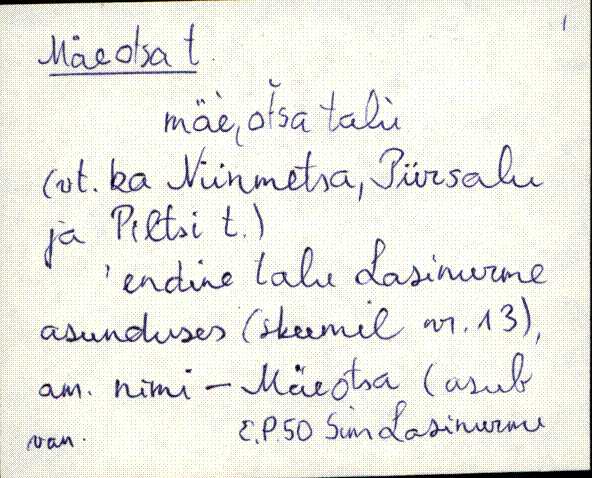 1
Mäeotsa t.
mäè, otsa talù
(vt. ka Niinmetsa, Piirsalu
ja Piltsi t.)
'endine talu Lasinurme
asunduses (skeemil nr. 13),
am. nimi – Mäeotsa (asub
van. E.P.50 Sim Lasinurme